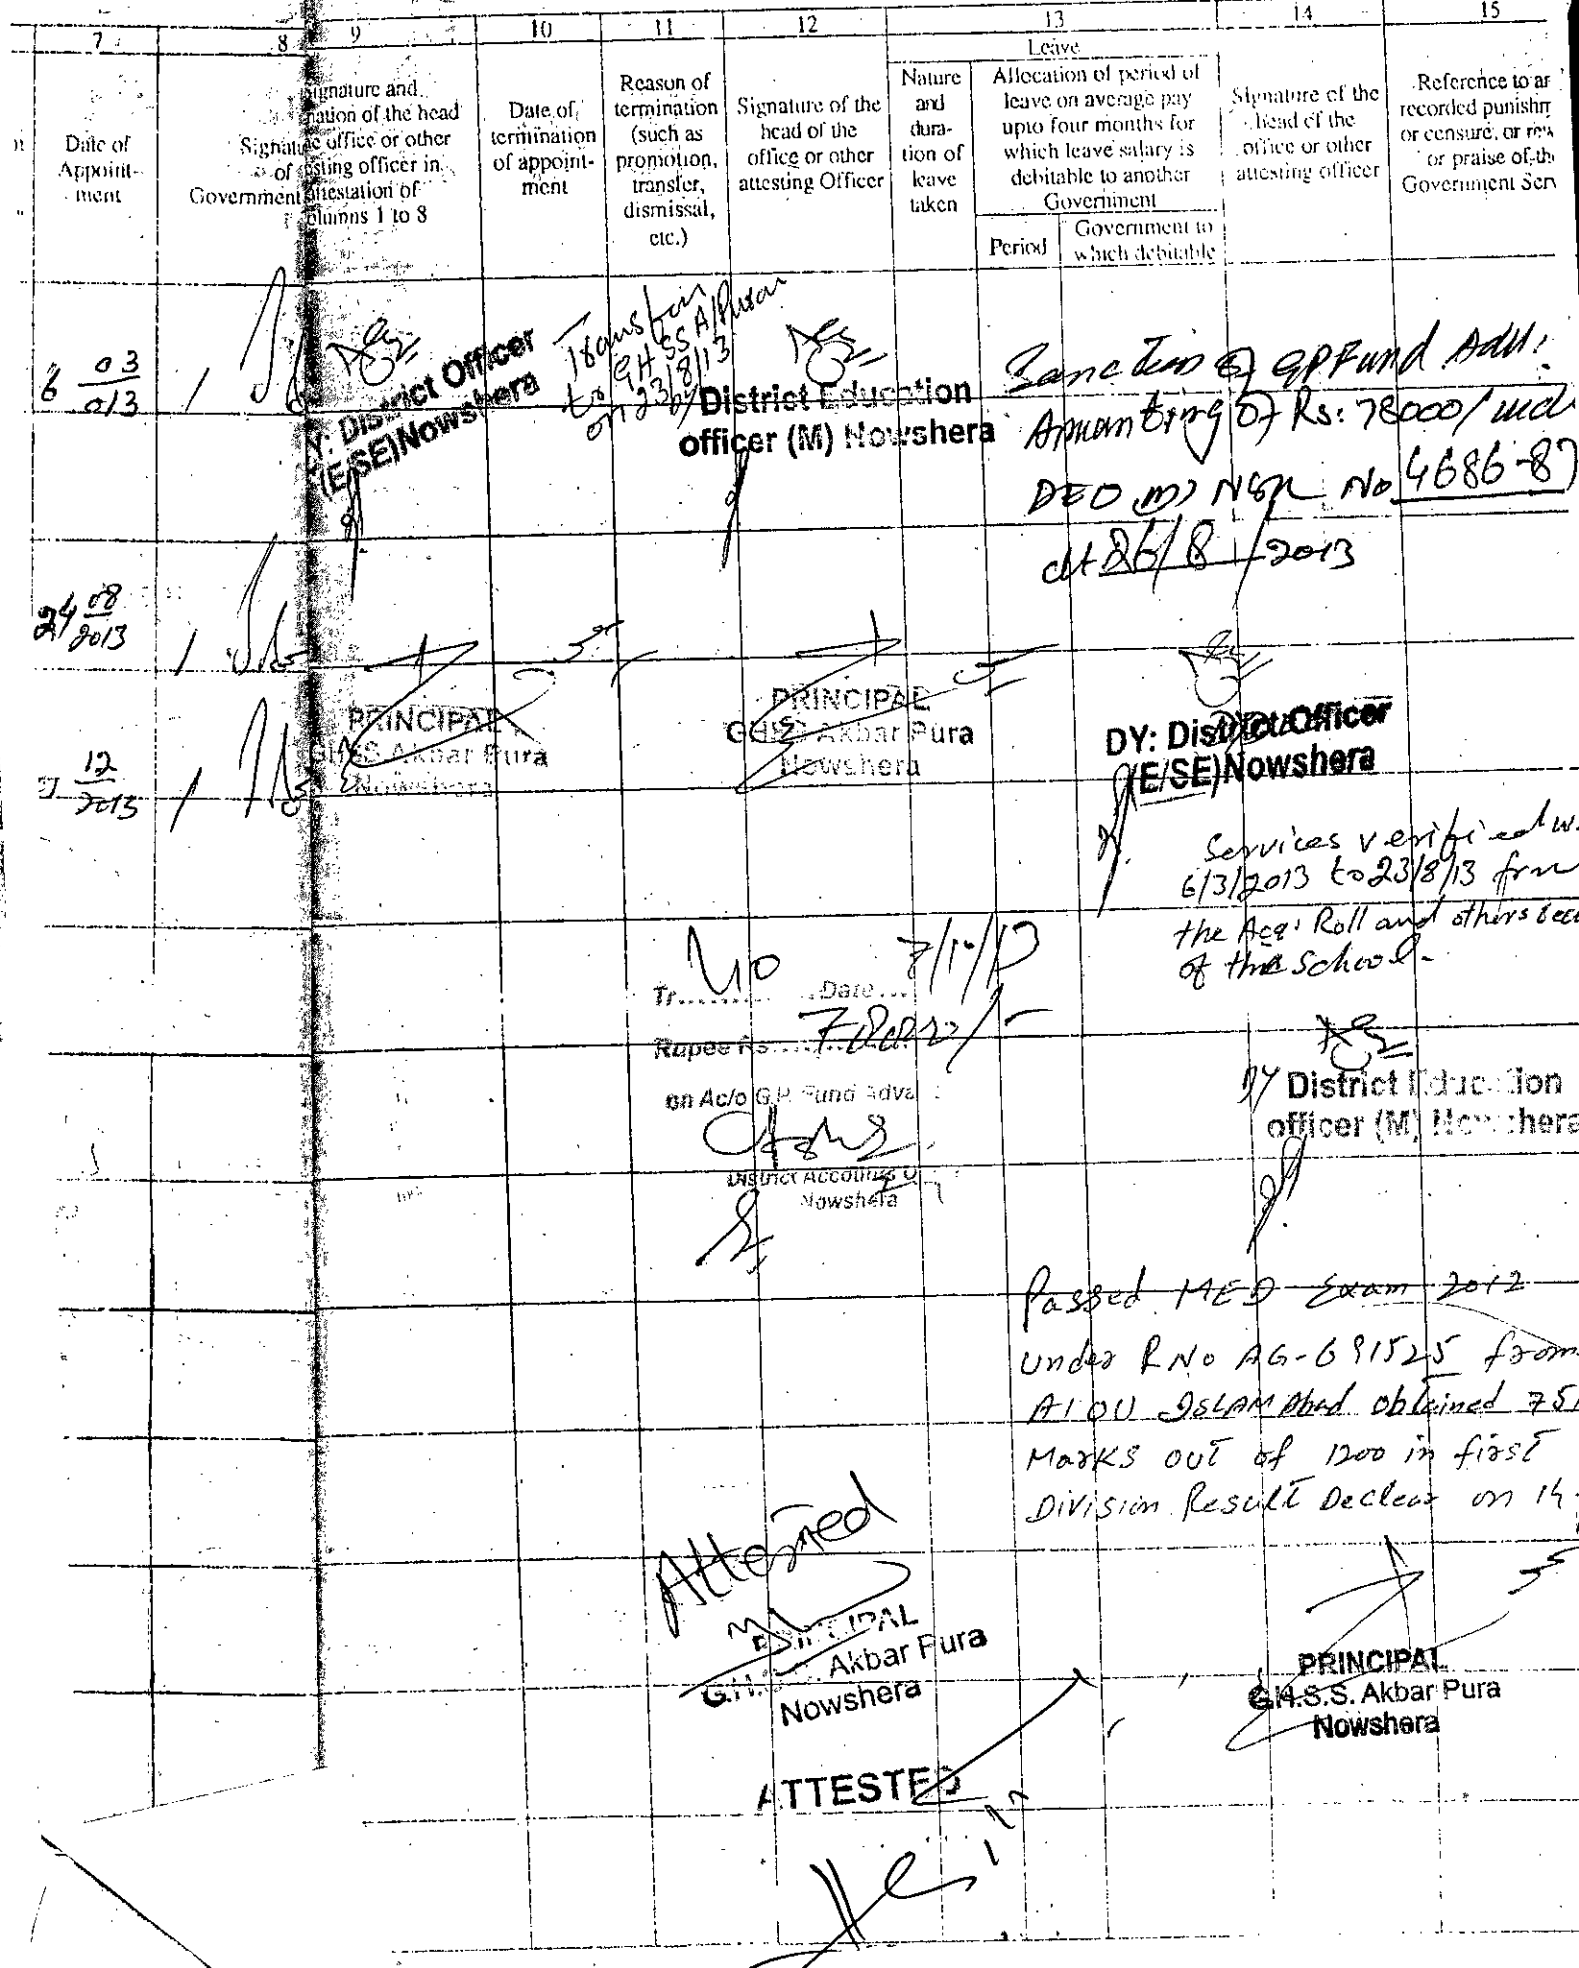 7
8
9
10
11
12
13
14
15
Date of
Appoint-
ment
Signature
of
Government
Signature and
nation of the head
office or other
sting officer in
attestation of
columns 1 to 8
Date of
termination
of appoint-
ment
Reason of
termination
(such as
promotion,
transfer,
dismissal,
etc.)
Signature of the
head of the
office or other
attesting Officer
Leave
Nature
and
dura-
tion of
leave
taken
Allocation of period of
leave on average pay
upto four months for
which leave salary is
debitable to another
Government
Period
Government to
which debitable
Signature of the
head of the
office or other
attesting officer
Reference to an
recorded punishm
or censure, or rew
or praise of the
Government Serv
6 03
013
Y: District Officer
(E/SE)Nowshera
Transfer
to GHSS A/Pura
on 23/8/13
District Education
officer (M) Nowshera
Sanction of GPFund Adv:
Amounting of Rs: 78000/
DEO (M) NSR No 4686-87
dt 26/8/2013
24 08
2013
PRINCIPAL
GHSS Akbar Pura
Nowshera
PRINCIPAL
GHSS Akbar Pura
Nowshera
DY: District Officer
(E/SE)Nowshera
12
2013
Services verified w.
6/3/2013 to 23/8/13 from
the Acq: Roll and others
of the School.
Tr......... Date...
Rupee Rs.....
on Ac/o G.P. Fund Adva
District Accounts O
Nowshera
DY District Education
officer (M) Nowshera
Passed MED Exam 2012
under RNo AG-691525 from
AIOU ISLAMAbad obtained 75
Marks out of 1200 in first
Division Result Declear on 14
Attested
PRINCIPAL
G.H.S.S. Akbar Pura
Nowshera
PRINCIPAL
G.H.S.S. Akbar Pura
Nowshera
ATTESTED